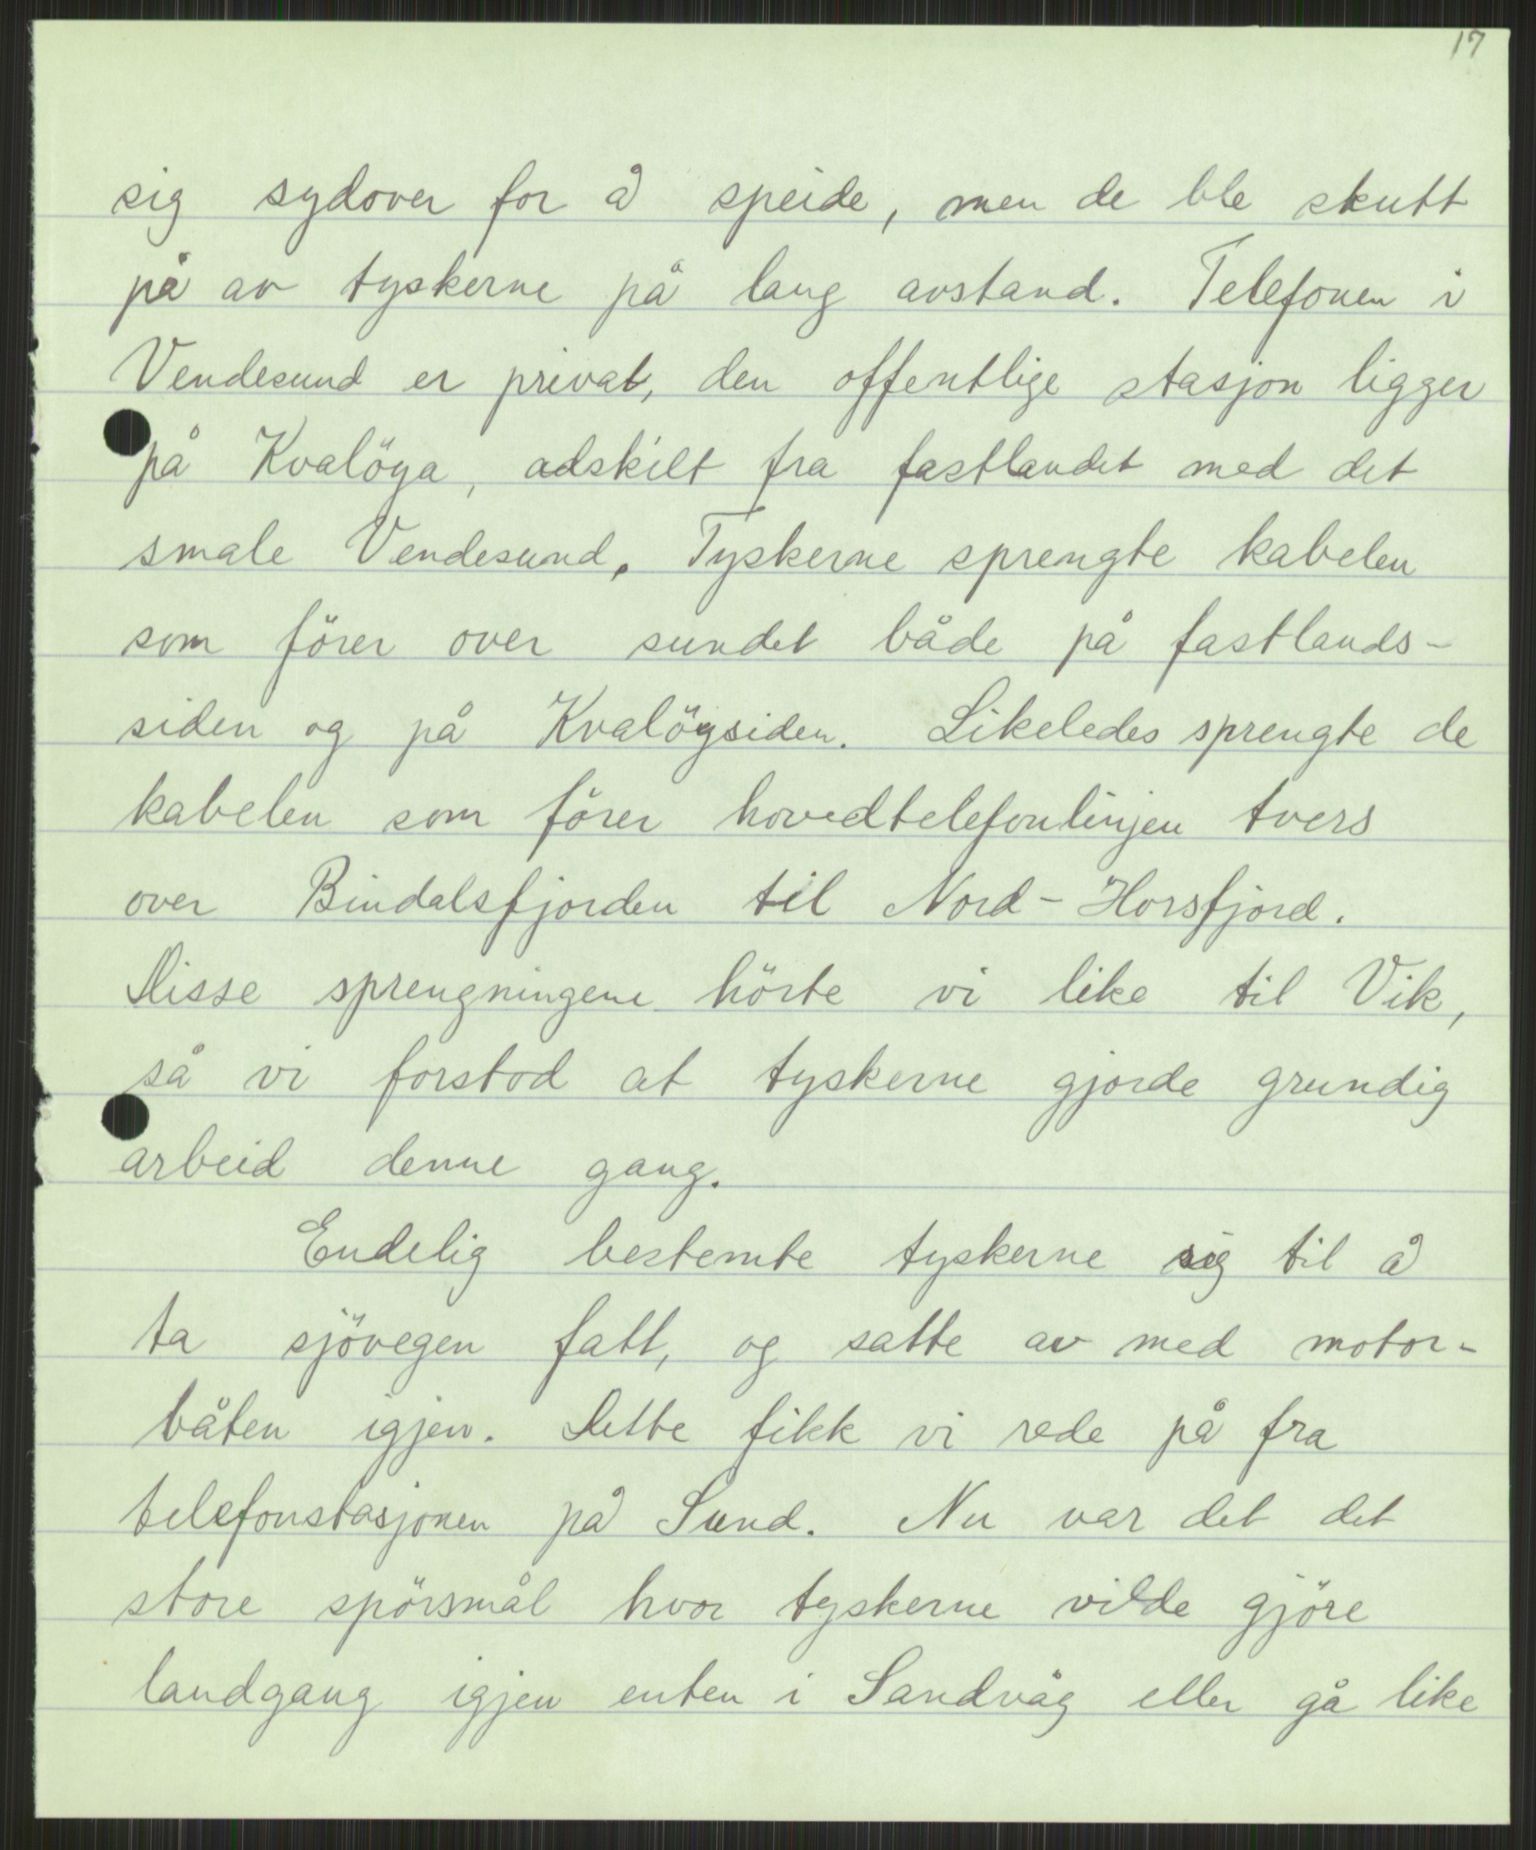 17
sig sydover for å speide, men de ble skutt
på av tyskerne på lang avstand. Telefonen i
Vendesund er privat, den offentlige stasjon ligger
på Kvalöya, adskilt fra fastlandet med det
smale Vendesund. Tyskerne sprengte kabelen
som förer over sundet både på fastlands-
siden og på Kvalöysiden. Likeledes sprengte de
kabelen som förer hovedtelefonlinjen tvers
over Bindalsfjorden til Nord-Horsfjord.
Disse sprengningene hörte vi like til Vik,
så vi forstod at tyskerne gjorde grundig
arbeid denne gang.
Endelig bestemte tyskerne sig til å
ta sjövegen fatt, og satte av med motor-
båten igjen. Dette fikk vi rede på fra
telefonstasjonen på Sund. Nu var det det
store spörsmål hvor tyskerne vilde gjöre
landgang igjen enten i Sandvåg eller gå like